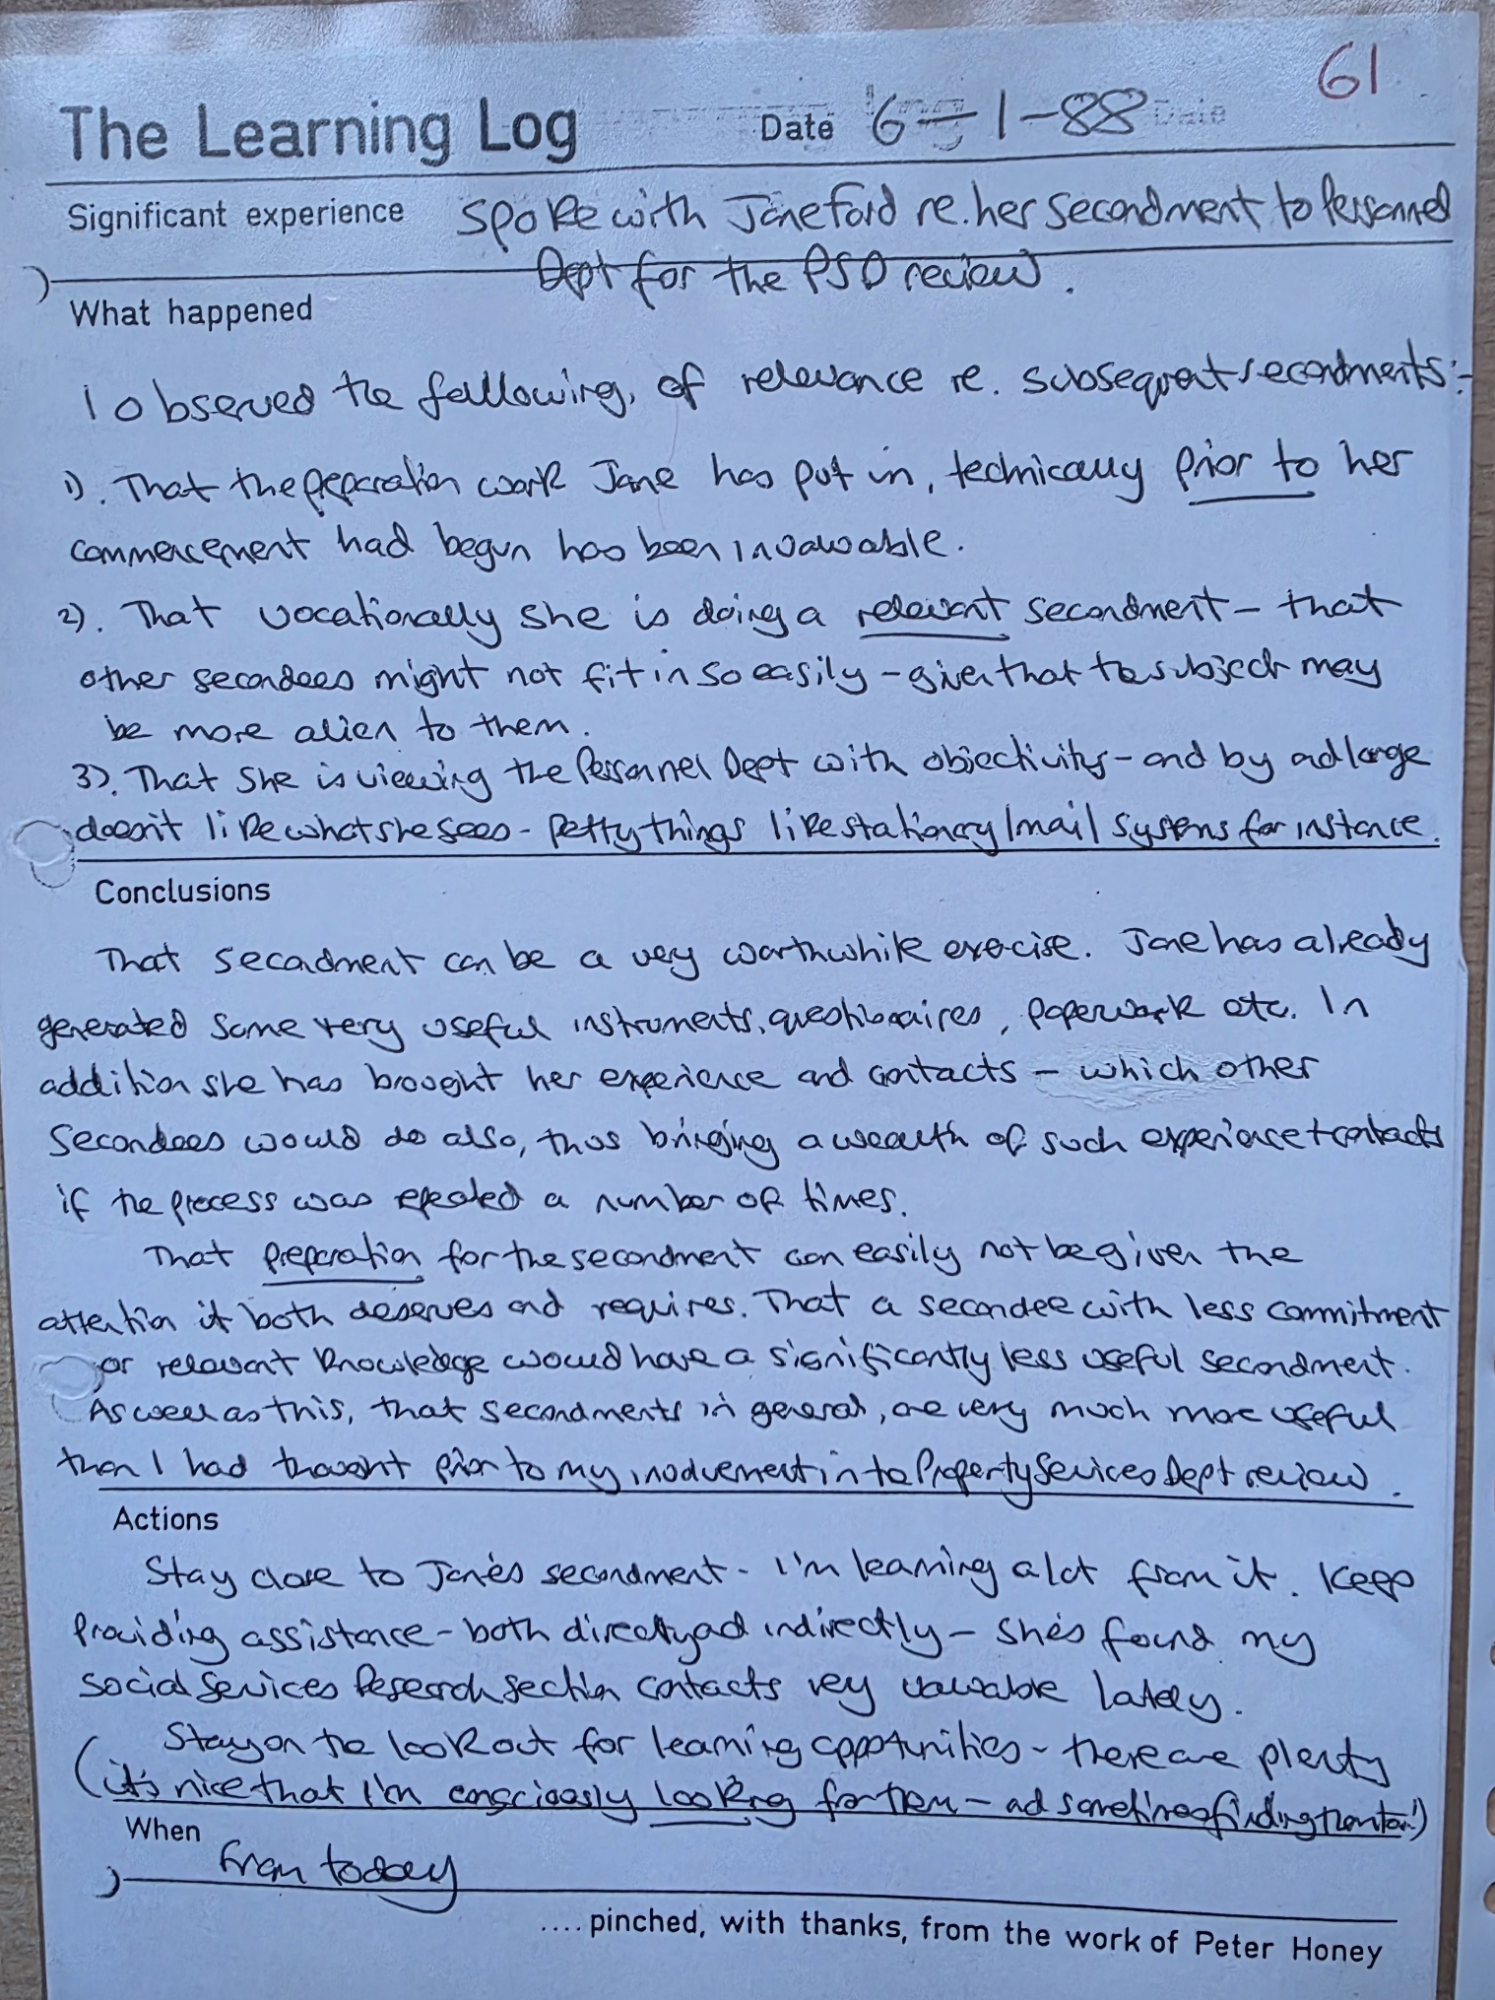 61
The Learning Log Date 6-1-88
Significant experience Spoke with Jane Ford re. her secondment to Personnel
Dept for the PSD review.
What happened
I observed the following, of relevance re. subsequent secondments:-
1). That the preparation work Jane has put in, technically prior to her
commencement had begun has been invaluable.
2). That vocationally she is doing a relevant secondment - that
other secondees might not fit in so easily - given that the subject may
be more alien to them.
3). That she is viewing the Personnel Dept with objectivity - and by and large
doesn't like what she sees - petty things like stationary/mail systems for instance.
Conclusions
That secondment can be a very worthwhile exercise. Jane has already
generated some very useful instruments, questionnaires, paperwork etc. In
addition she has brought her experience and contacts - which other
secondees would do also, thus bringing a wealth of such experience + contacts
if the process was repeated a number of times.
That preparation for the secondment can easily not be given the
attention it both deserves and requires. That a secondee with less commitment
or relevant knowledge would have a significantly less useful secondment.
As well as this, that secondments in general, are very much more useful
than I had thought prior to my involvement in the Property Services Dept review.
Actions
Stay close to Jane's secondment - I'm learning a lot from it. Keep
providing assistance - both directly and indirectly - she's found my
Social Services Research section contacts very valuable lately.
Stay on the lookout for learning opportunities - there are plenty
(it's nice that I'm consciously looking for them - and sometimes finding them too!)
When
From today
.... pinched, with thanks, from the work of Peter Honey